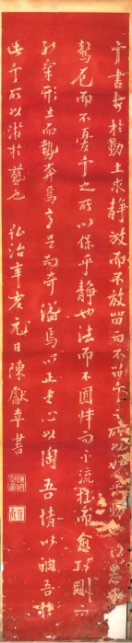 予書每於動上求靜放而不放留而不留此吾所以妙乎動也得志弗
驚厄而不憂予之所以保乎靜也法而不囿肆而不流拙而愈巧剛而
能柔形立而勢奔焉意足而奇溢焉以正吾心以陶吾情以調吾性
此予所以游於藝也 弘治辛亥元日陳獻章書